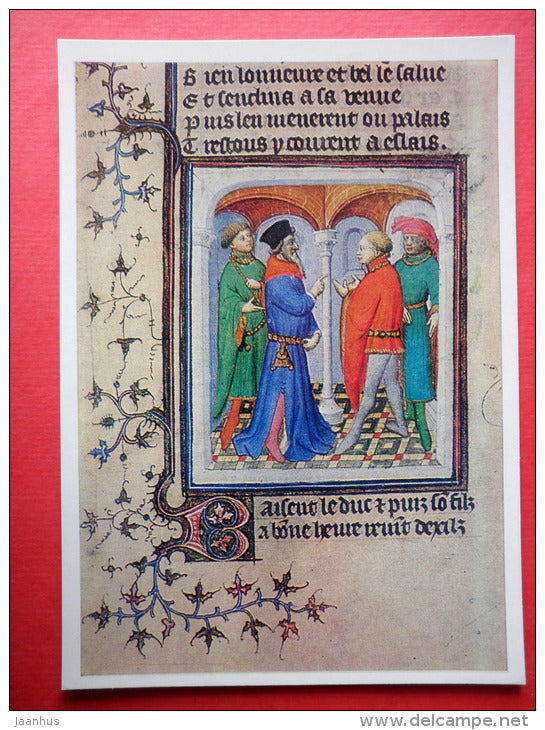 B ien lonneure et bel le salue
E t senclina a sa venue
P uis len menerent ou palais
T restous y courent a eslais.
B aisent le duc & puiz so filz
a bōne heure reuīt dexilz
Jaanhus
www.delcampe.net